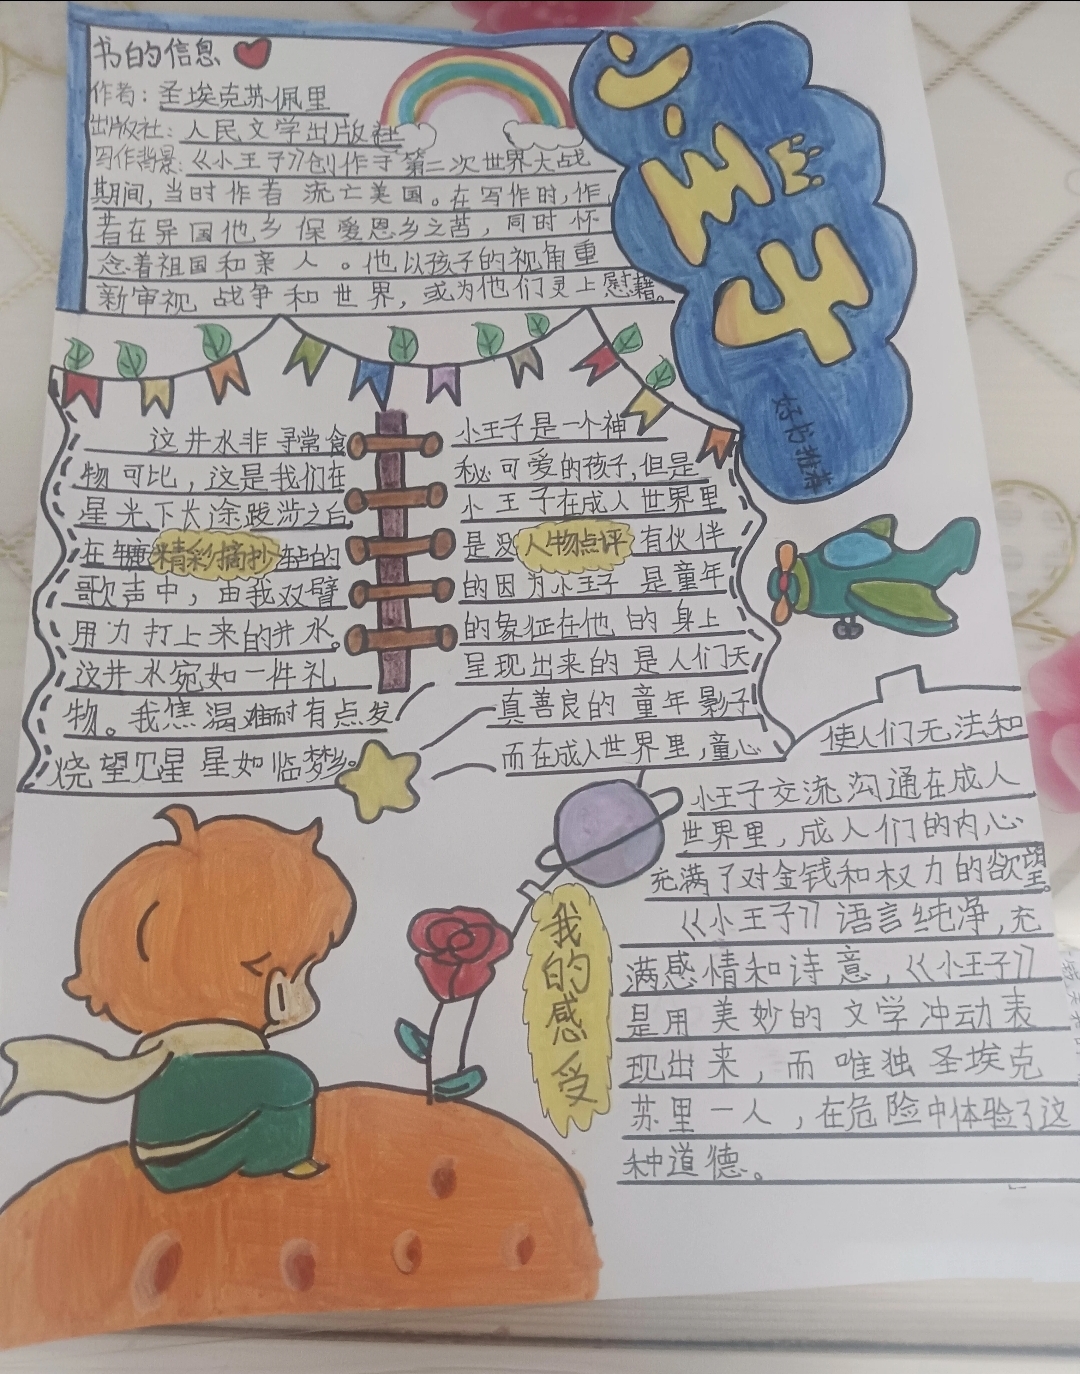 书的信息
作者：圣埃克苏佩里
出版社：人民文学出版社
写作背景：《小王子》创作于第二次世界大战
期间，当时作者流亡美国。在写作时，作
者在异国他乡保爱恩乡之苦，同时怀
念着祖国和亲人。他以孩子的视角重
新审视战争和世界，或为他们灵上慰藉。
小王子
好书推荐
这井水非寻常食
物可比，这是我们在
星光下长途跋涉之后
在辘轳的
精彩摘抄
歌声中，由我双臂
用力打上来的井水。
这井水宛如一件礼
物。我焦渴难耐有点发
烧望见星星如临梦乡。
小王子是一个神
秘可爱的孩子，但是
小王子在成人世界里
是没有伙伴
人物点评
的因为小王子是童年
的象征在他的身上
呈现出来的是人们天
真善良的童年影子
而在成人世界里，童心
使人们无法和
小王子交流沟通在成人
世界里，成人们的内心
充满了对金钱和权力的欲望。
我的感受
《小王子》语言纯净，充
满感情和诗意，《小王子》
是用美妙的文学冲动表
现出来，而唯独圣埃克
苏里一人，在危险中体验了这
种道德。